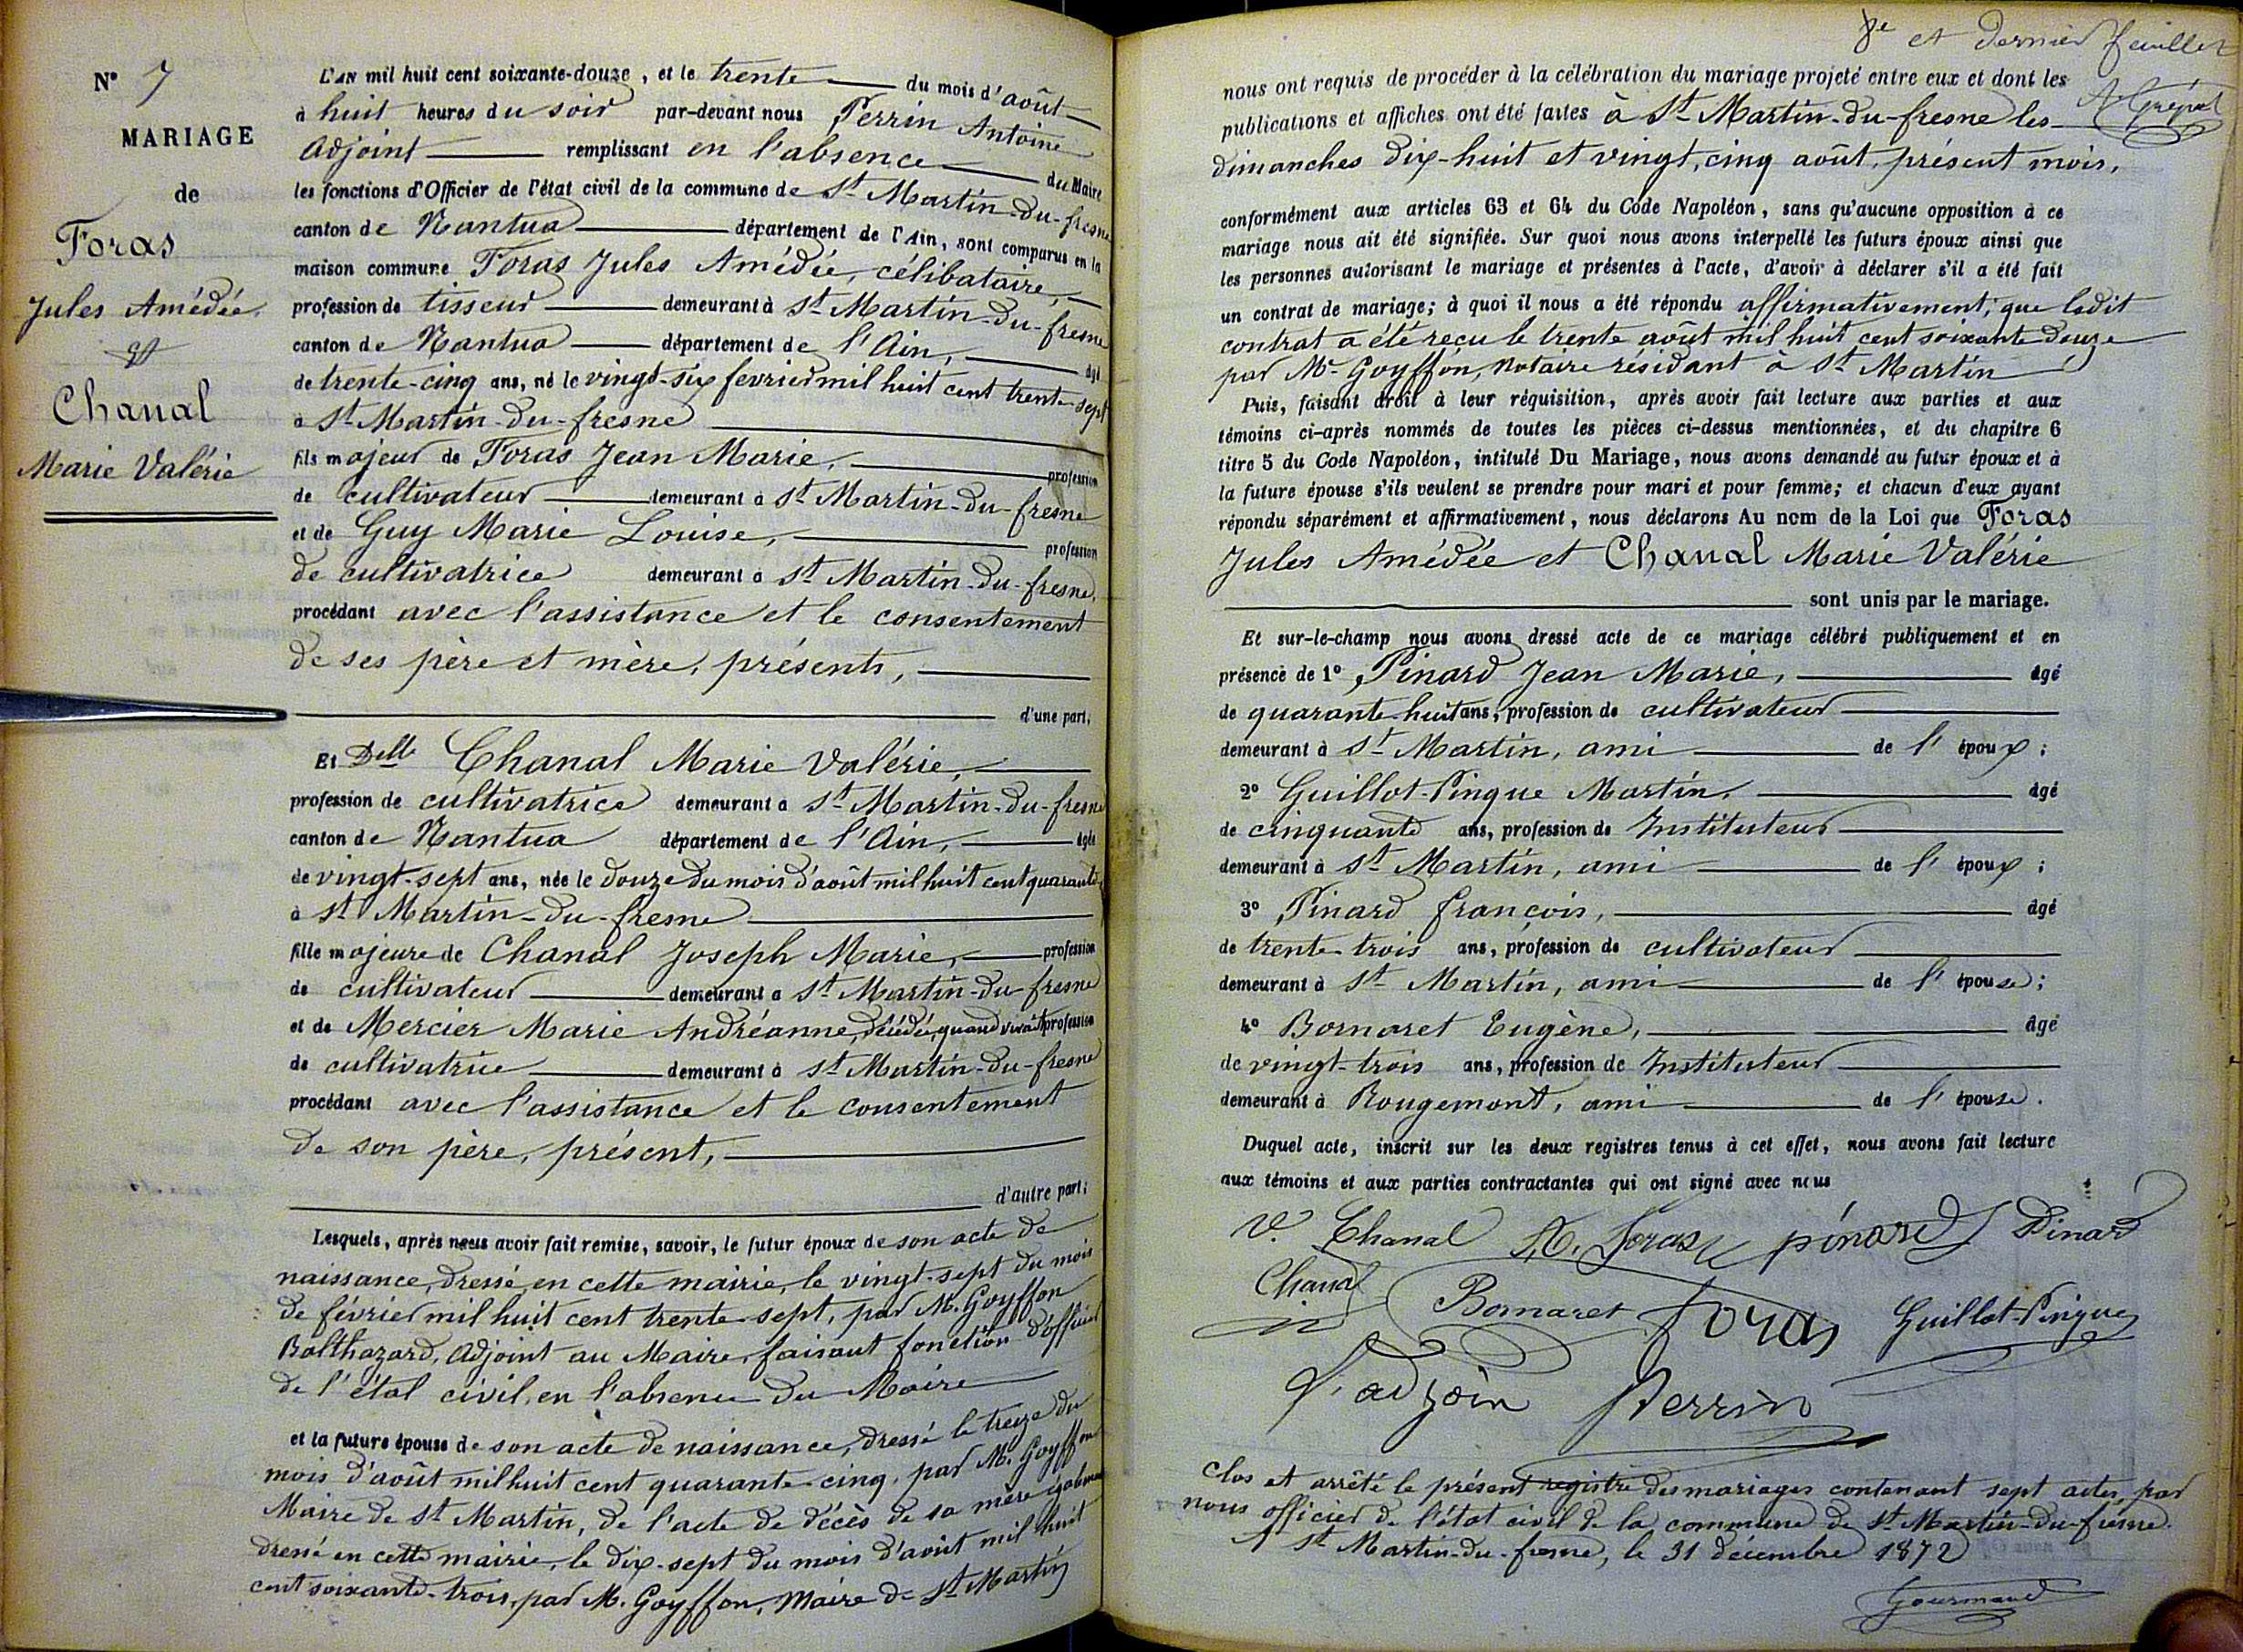 N° 7
MARIAGE
de
Foras
Jules Amédée
et
Chanal
Marie Valérie
L'AN mil huit cent soixante-douze, et le trente du mois d'août
à huit heures du soir par-devant nous Perrin Antoine
Adjoint remplissant en l'absence du Maire
les fonctions d'Officier de l'état civil de la commune de St Martin-du-fresne
canton de Nantua département de l'Ain, sont comparus en la
maison commune Foras Jules Amédée, célibataire,
profession de tisseur demeurant à St Martin-du-fresne
canton de Nantua département de l'Ain, âgé
de trente-cinq ans, né le vingt-six février mil huit cent trente-sept
à St Martin-du-fresne
fils majeur de Foras Jean Marie, profession
de cultivateur demeurant à St Martin-du-fresne
et de Guy Marie Louise, profession
de cultivatrice demeurant à St Martin-du-fresne,
procédant avec l'assistance et le consentement
de ses père et mère, présents,
d'une part,
Et Delle Chanal Marie Valérie,
profession de cultivatrice demeurant à St Martin-du-fresne
canton de Nantua département de l'Ain, âgée
de vingt-sept ans, née le douze du mois d'août mil huit cent quarante
à St Martin-du-fresne
fille majeure de Chanal Joseph Marie, profession
de cultivateur demeurant à St Martin-du-fresne
et de Mercier Marie Andréanne, décédée, quand vivait profession
de cultivatrice demeurant à St Martin-du-fresne
procédant avec l'assistance et le consentement
de son père, présent,
d'autre part;
Lesquels, après nous avoir fait remise, savoir, le futur époux de son acte de
naissance, dressé en cette mairie, le vingt-sept du mois
de février mil huit cent trente-sept, par M. Goyffon
Balthazard, Adjoint au Maire, faisant fonction d'officier
de l'état civil, en l'absence du Maire
et la future épouse de son acte de naissance, dressé le treize du
mois d'août mil huit cent quarante-cinq, par M. Goyffon
Maire de St Martin, de l'acte de décès de sa mère également
dressé en cette mairie, le dix-sept du mois d'août mil huit
cent soixante-trois, par M. Goyffon, Maire de St Martin
8e et dernier feuillet
nous ont requis de procéder à la célébration du mariage projeté entre eux et dont les
publications et affiches ont été faites à St Martin-du-fresne les
dimanches dix-huit et vingt-cinq août, présent mois,
conformément aux articles 63 et 64 du Code Napoléon, sans qu'aucune opposition à ce
mariage nous ait été signifiée. Sur quoi nous avons interpellé les futurs époux ainsi que
les personnes autorisant le mariage et présentes à l'acte, d'avoir à déclarer s'il a été fait
un contrat de mariage; à quoi il nous a été répondu affirmativement; que ledit
contrat a été reçu le trente août mil huit cent soixante douze
par Me Goyffon, Notaire résidant à St Martin
Puis, faisant droit à leur réquisition, après avoir fait lecture aux parties et aux
témoins ci-après nommés de toutes les pièces ci-dessus mentionnées, et du chapitre 6
titre 5 du Code Napoléon, intitulé Du Mariage, nous avons demandé au futur époux et à
la future épouse s'ils veulent se prendre pour mari et pour femme; et chacun d'eux ayant
répondu séparément et affirmativement, nous déclarons Au nom de la Loi que Foras
Jules Amédée et Chanal Marie Valérie
sont unis par le mariage.
Et sur-le-champ nous avons dressé acte de ce mariage célébré publiquement et en
présence de 1° Pinard Jean Marie, âgé
de quarante-huit ans, profession de cultivateur
demeurant à St Martin, ami de l'époux;
2° Guillot-Pingue Martin, âgé
de cinquante ans, profession de Instituteur
demeurant à St Martin, ami de l'époux;
3° Pinard françois, âgé
de trente-trois ans, profession de cultivateur
demeurant à St Martin, ami de l'épouse;
4° Bornaret Eugène, âgé
de vingt-trois ans, profession de Instituteur
demeurant à Rougemont, ami de l'épouse.
Duquel acte, inscrit sur les deux registres tenus à cet effet, nous avons fait lecture
aux témoins et aux parties contractantes qui ont signé avec nous
V. Chanal A. Foras pinard Pinard
Chanal Bornaret foras Guillot-Pingue
L'adjoin Perrin
Clos et arrêté le présent registre des mariages contenant sept actes, par
nous officier de l'état civil de la commune de St Martin-du-fresne.
A St Martin-du-fresne, le 31 décembre 1872
Gourmand